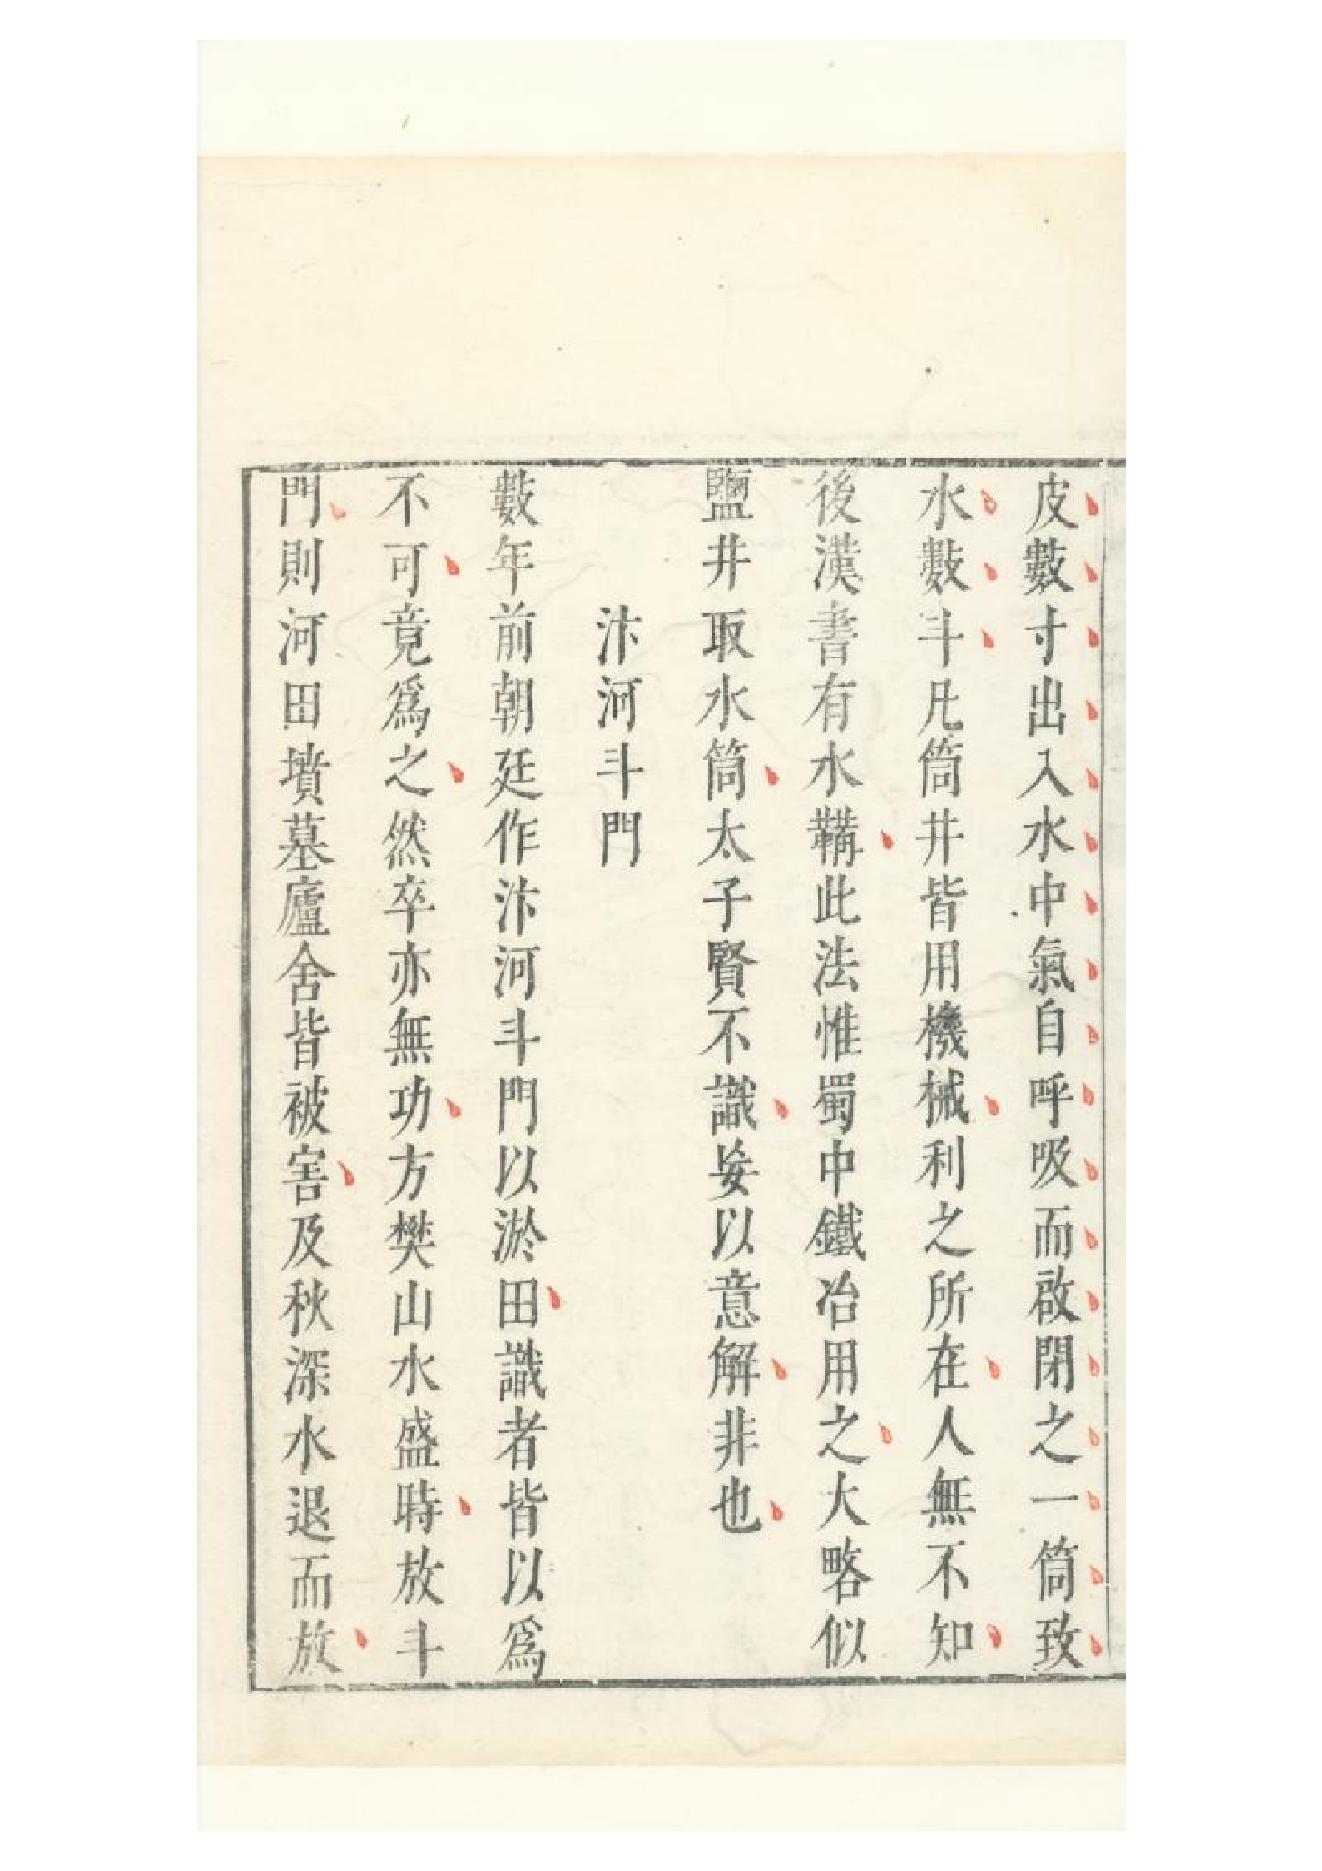 皮數寸出入水中氣自呼吸而啟閉之一筒致
水數斗凡筒井皆用機械利之所在人無不知
後漢書有水鞴此法惟蜀中鐵冶用之大略似
鹽井取水筒太子賢不識妄以意解非也
汴河斗門
數年前朝廷作汴河斗門以淤田識者皆以爲
不可竟爲之然卒亦無功方樊山水盛時放斗
門則河田墳墓廬舍皆被害及秋深水退而放